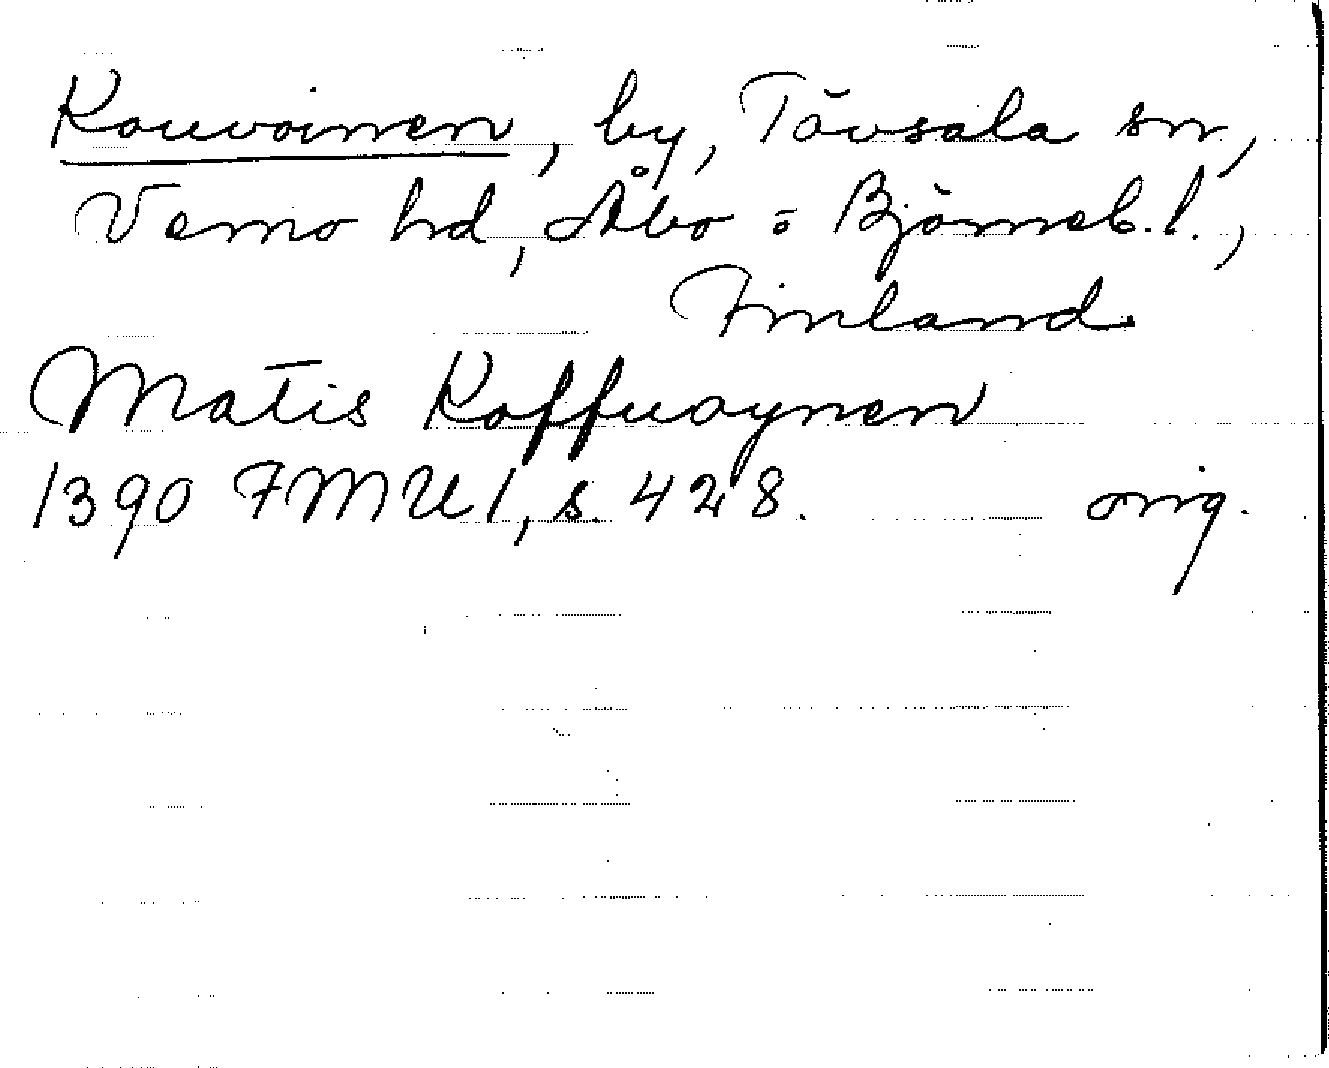 Kouvoinen, by, Tövsala sn,
Vemo hd, Åbo o Björneb. l.,
Finland
Matis Koffuoynen
1390 FMU 1, s. 428. orig.